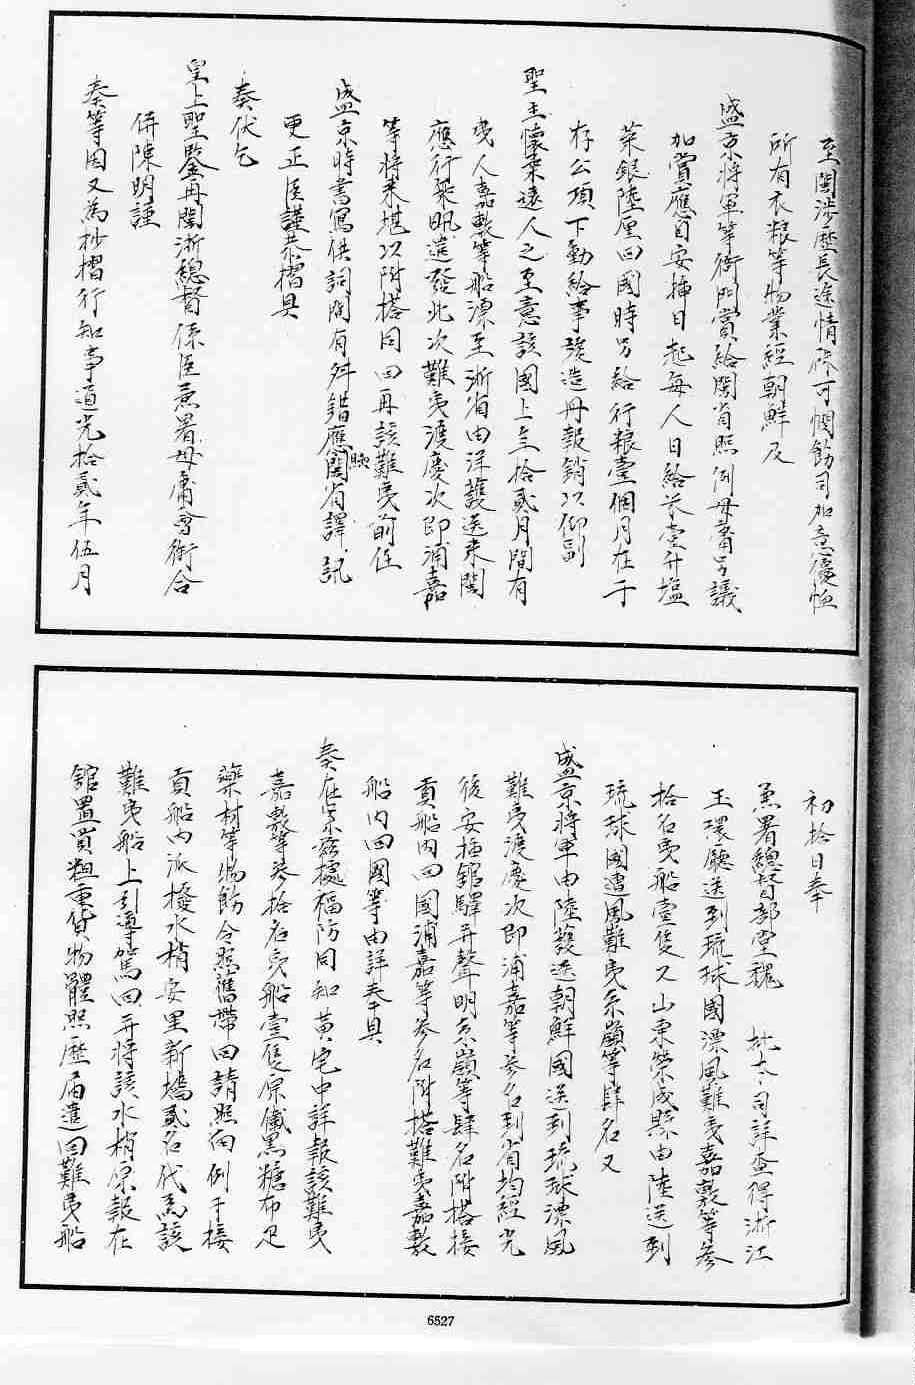 至閩涉歷長途情殊可憫飭司加意優恤
所有衣粮等物業經朝鮮及
盛京將軍等衙門賞給閩省照例毋庸另議
加賞應自安揷日起每人日給米壹升塩
菜銀陸厘回國時另給行粮壹個月在于
存公項下動給事竣造册報銷以仰副
聖主懷柔遠人之至意該國上年拾貳月間有
夷人嘉敷等船漂至浙省由洋護送來閩
應行乘汛遣發此次難夷渡慶次即浦嘉
等將來堪以附搭同回再該難夷前在
盛京時書寫供詞間有舛錯應照閩省譯訊
更正臣謹恭摺具
奏伏乞
皇上聖鑒再閩浙總督係臣兼署毋庸會銜合
併陳明謹
奏等因又為抄摺行知事道光拾貳年伍月
初拾日奉
兼署總督部堂魏 批本司詳查得浙江
玉環廳送到琉球國漂風難夷嘉敷等參
拾名夷船壹隻又山東榮成縣由陸送到
琉球國遭風難夷糸嶺等肆名又
盛京將軍由陸護送朝鮮國送到琉球漂風
難夷渡慶次即浦嘉等參名到省均經先
後安插館驛并聲明糸嶺等肆名附搭接
貢船內回國浦嘉等參名附搭難夷嘉敷
船內回國等由詳奉具
奏在案茲據福防同知黃宅中詳報該難夷
嘉敷等參拾名夷船壹隻原儎黑糖布疋
藥材等物飭令照舊帶回請照向例于接
貢船內派撥水梢安里新嶋貳名代為該
難夷船上引導駕回并將該水梢原報在
館置買粗重貨物體照歷屆遣回難夷船
6527